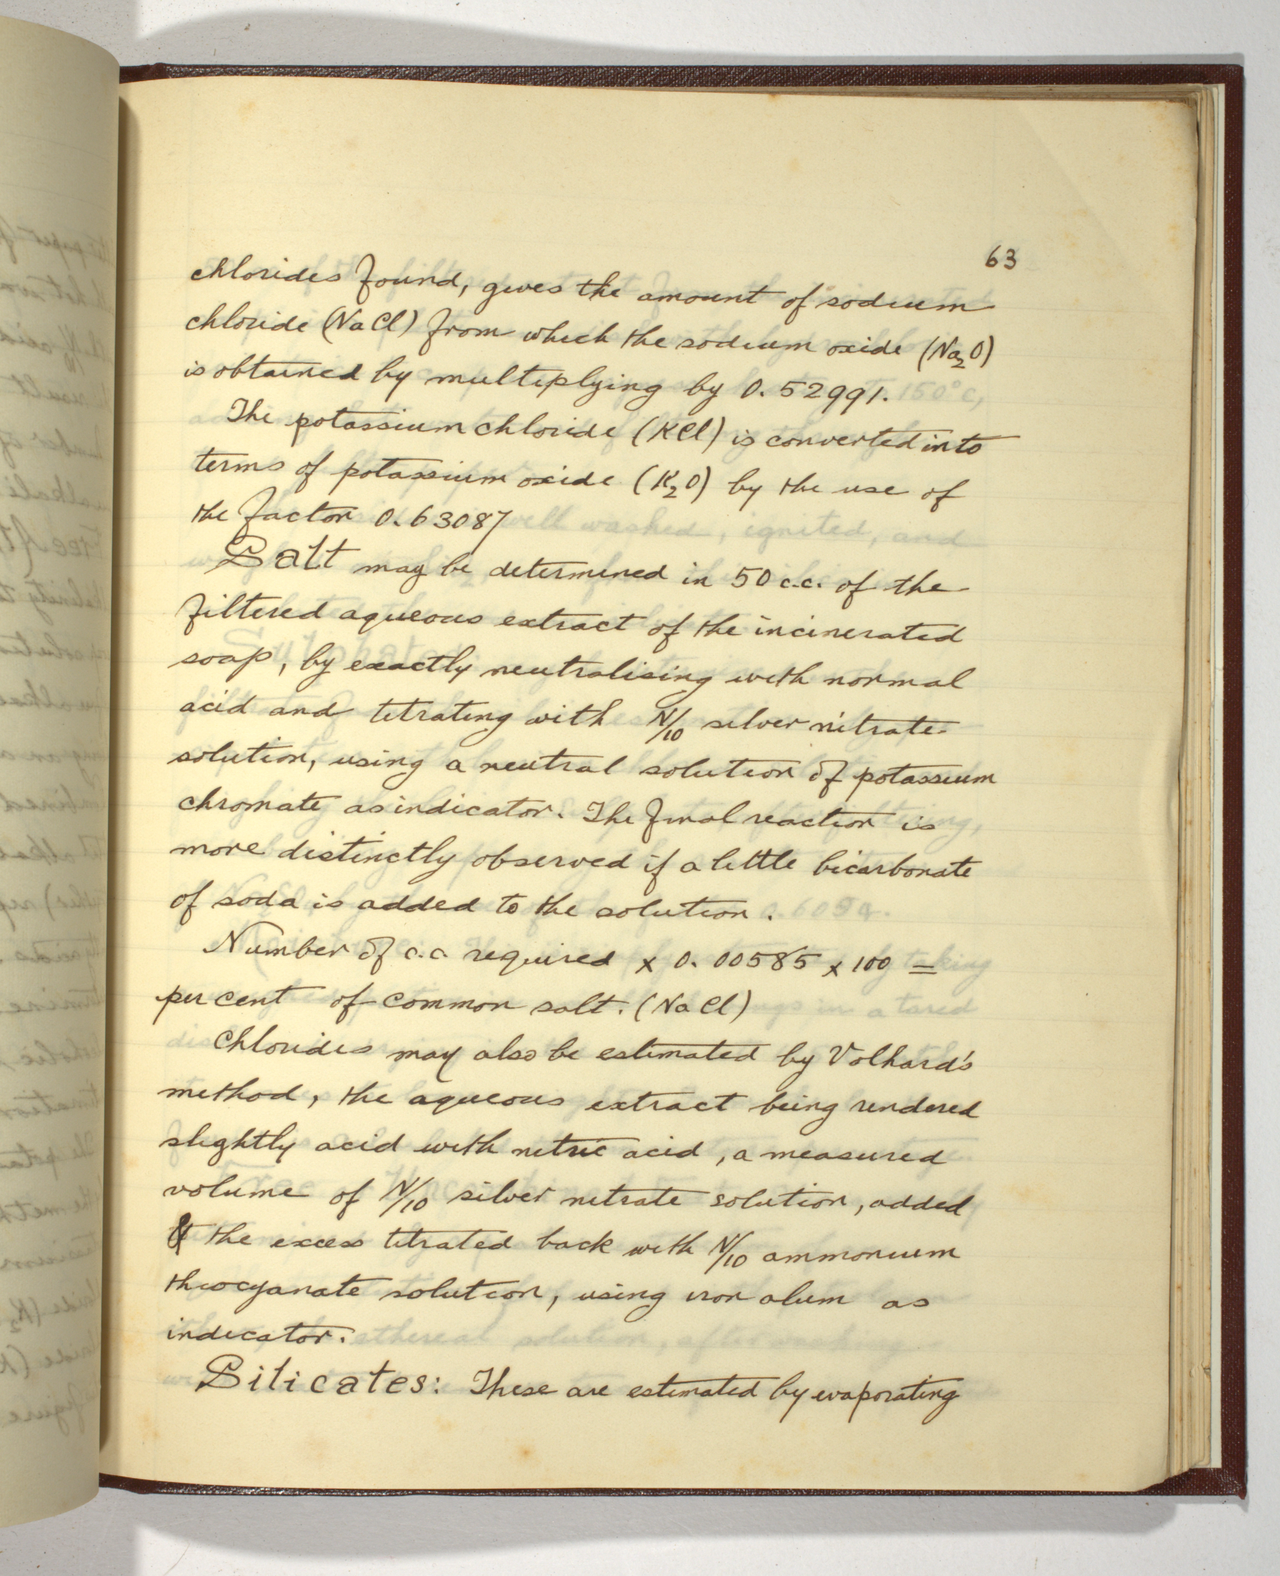 63
chlorides found, gives the amount of sodium
chloride (NaCl) from which the sodium oxide (Na₂O)
is obtained by multiplying by 0.52991.
The potassium chloride (KCl) is converted into
terms of potassium oxide (K₂O) by the use of
the factor 0.63087
Salt may be determined in 50 c.c. of the
filtered aqueous extract of the incinerated
soap, by exactly neutralising with normal
acid and titrating with N/10 silver nitrate
solution, using a neutral solution of potassium
chromate as indicator. The final reaction is
more distinctly observed if a little bicarbonate
of soda is added to the solution.
Number of c.c. required x 0.00585 x 100 =
per cent of common salt. (NaCl)
Chlorides may also be estimated by Volhard's
method, the aqueous extract being rendered
slightly acid with nitric acid, a measured
volume of N/10 silver nitrate solution, added
& the excess titrated back with N/10 ammonium
thiocyanate solution, using iron alum as
indicator.
Silicates: These are estimated by evaporating